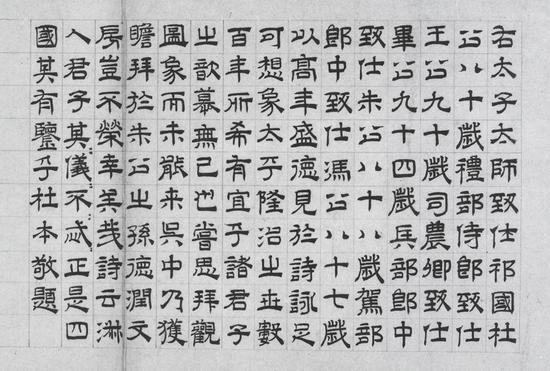 右太子太師致仕祁國杜
公八十歲禮部侍郎致仕
王公九十歲司農卿致仕
畢公九十四歲兵部郎中
致仕朱公八十八歲駕部
郎中致仕馮公八十七歲
以高年盛德見於詩詠足
可想象太平隆治之世數
百年所希有宜乎諸君子
之歆慕無已也嘗思拜觀
圖象而未能来吳中乃獲
瞻拜於朱公之孫德潤文
房豈不榮幸矣哉詩云淑
人君子其儀不忒正是四
國其有鑒乎杜本敬題